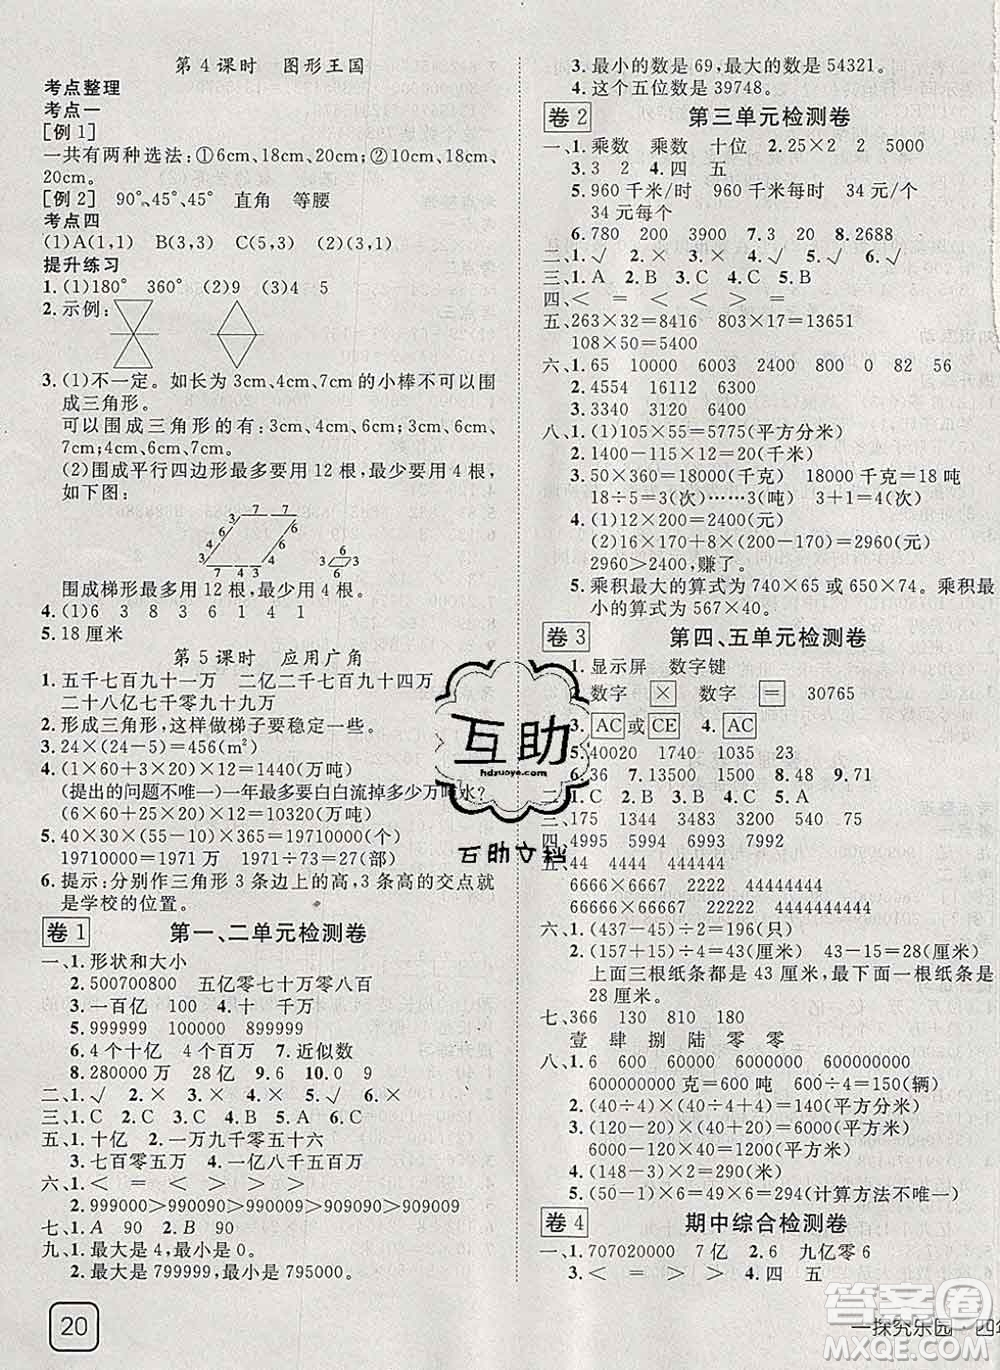 第4课时 图形王国
考点整理
考点一
[例1]
一共有两种选法:①6cm、18cm、20cm;②10cm、18cm、
20cm。
[例2] 90°、45°、45° 直角 等腰
考点四
(1)A(1,1) B(3,3) C(5,3) (3,1)
提升练习
1. (1)180° 360° (2)9 4 5
2. 示例:
3. (1)不一定。如长为3cm、4cm、7cm的小棒不可以围
成三角形。
可以围成三角形的有:3cm、4cm、6cm;3cm、6cm、
7cm;4cm、6cm、7cm。
(2)围成平行四边形最多要用12根,最少要用4根,
如下图:
3 7 7
3 6
6 3
6 6
7 7 3
围成梯形最多用12根,最少用4根。
4. (1)6 3 8 3 6 1 4 1
5. 18厘米
第5课时 应用广角
1. 五千七百九十一万 二亿二千七百九十四万
二十八亿七千六百九十九万
2. 形成三角形,这样做梯子要稳定一些。
3. 24×(24-5)=456(m²)
4. (1×60+3×20)×12=1440(万吨)
(提出的问题不唯一)一年最多要白白流掉多少万吨水?
(6×60+25×20)×12=10320(万吨)
5. 40×30×(22+23)×365=19710000(个)
19710000=1971万 1971÷73=27(部)
6. 提示:分别作三角形3条边上的高,3条高的交点就
是学校的位置。
卷1 第一、二单元检测卷
一、1. 形状和大小
2. 500700800 五亿零七十万零八百
3. 一百亿 100 4. 十 千万
5. 999999 100000 899999
6. 4个十亿 4个十万 7. 近似数
8. 280000 万 20 9. 10. 0 9
二、1. √ 2. × 3. × 4. √ 5. √ 6. ×
三、1. C 2. C 3. A 4. B 5. C
五、1. 十亿 2. 一万九千零五十六
3. 七百零五万 4. 一亿八千五百万
六、1. < = < > > >
2. 999000>990999>990909>909990>909909
七、1. A 90 2. B 90
九、1. 最大是4,最小是0。
2. 最大是799999,最小是795000。
20
3. 最小的数是69,最大的数是54321。
4. 这个五位数是39748。
卷2 第三单元检测卷
一、1. 乘数 乘数 十位 2. 25×2 2 5000
3. 3 2 4. 四 五
5. 960千米/时 960千米每时 34元/个
34元每个
6. 780 200 3900 7. 3 20 8. 2688
二、1. √ 2. × 3. √ 4. × 5. √
三、1. A 2. B 3. B 4. C
四、< = < < > =
五、263×32=8416 803×17=13651
108×50=5400
六、1. 65 10000 6000 2400 800 0 82 56
2. 4554 16112 6300
3. 9340 3120 6400
八、1. (1)105×55=5775(平方分米)
2. 1400-115×12=20(千米)
3. 50×360=18000(千克) 18000千克=18吨
18÷5=3(次)……3(吨) 3+1=4(次)
4. (1)12×200=2400(元)
(2)16×170+8×(200-170)=2960(元)
2960>2400,赚了。
5. 乘积最大的算式为740×65或650×74。乘积最
小的算式为567×40。
卷3 第四、五单元检测卷
一、1. 显示屏 数字键
2. 数字 × 数字 = 30765
3. AC或CE 4. AC
5. 40020 1740 1035 23
6. 36 7. 13500 1500 8. 42 9. 71
二、1. C 2. C 3. B 4. C
三、175 1344 3483 822 6120
四、4995 5994 6993 7992
五、44 4444 444444
6666666×66666667=
66666666×66666667 4444444222222222
六、1. (437-45)÷2=196(只)
2. (157+15)÷4=43(厘米) 43-15=28(厘米)
上面三根纸条都是43厘米,最下面一根纸条是
28厘米。
七、366 130 810 180
壹 肆 捌 陆 零 零
八、1. 6 600 60000 6000000 600000000
600000000克=600吨 600÷4=150(辆)
2. (40÷4)×(40÷4)=100(块)
3. (120-20)×(120÷2)=6000(平方米)
6000-10×120=4800(平方米)
4. (148-3)×2=290(米)
5. (50-1)×6=294(个)(计算方法不唯一)
卷4 期中综合检测卷
一、1. 707020000 7亿 2. 6 九亿零6
3. < = > > < 4. 四 五
一探究乐园·四年
互助
hdzuoye.com
互助文档
答案圈
MXQE.COM